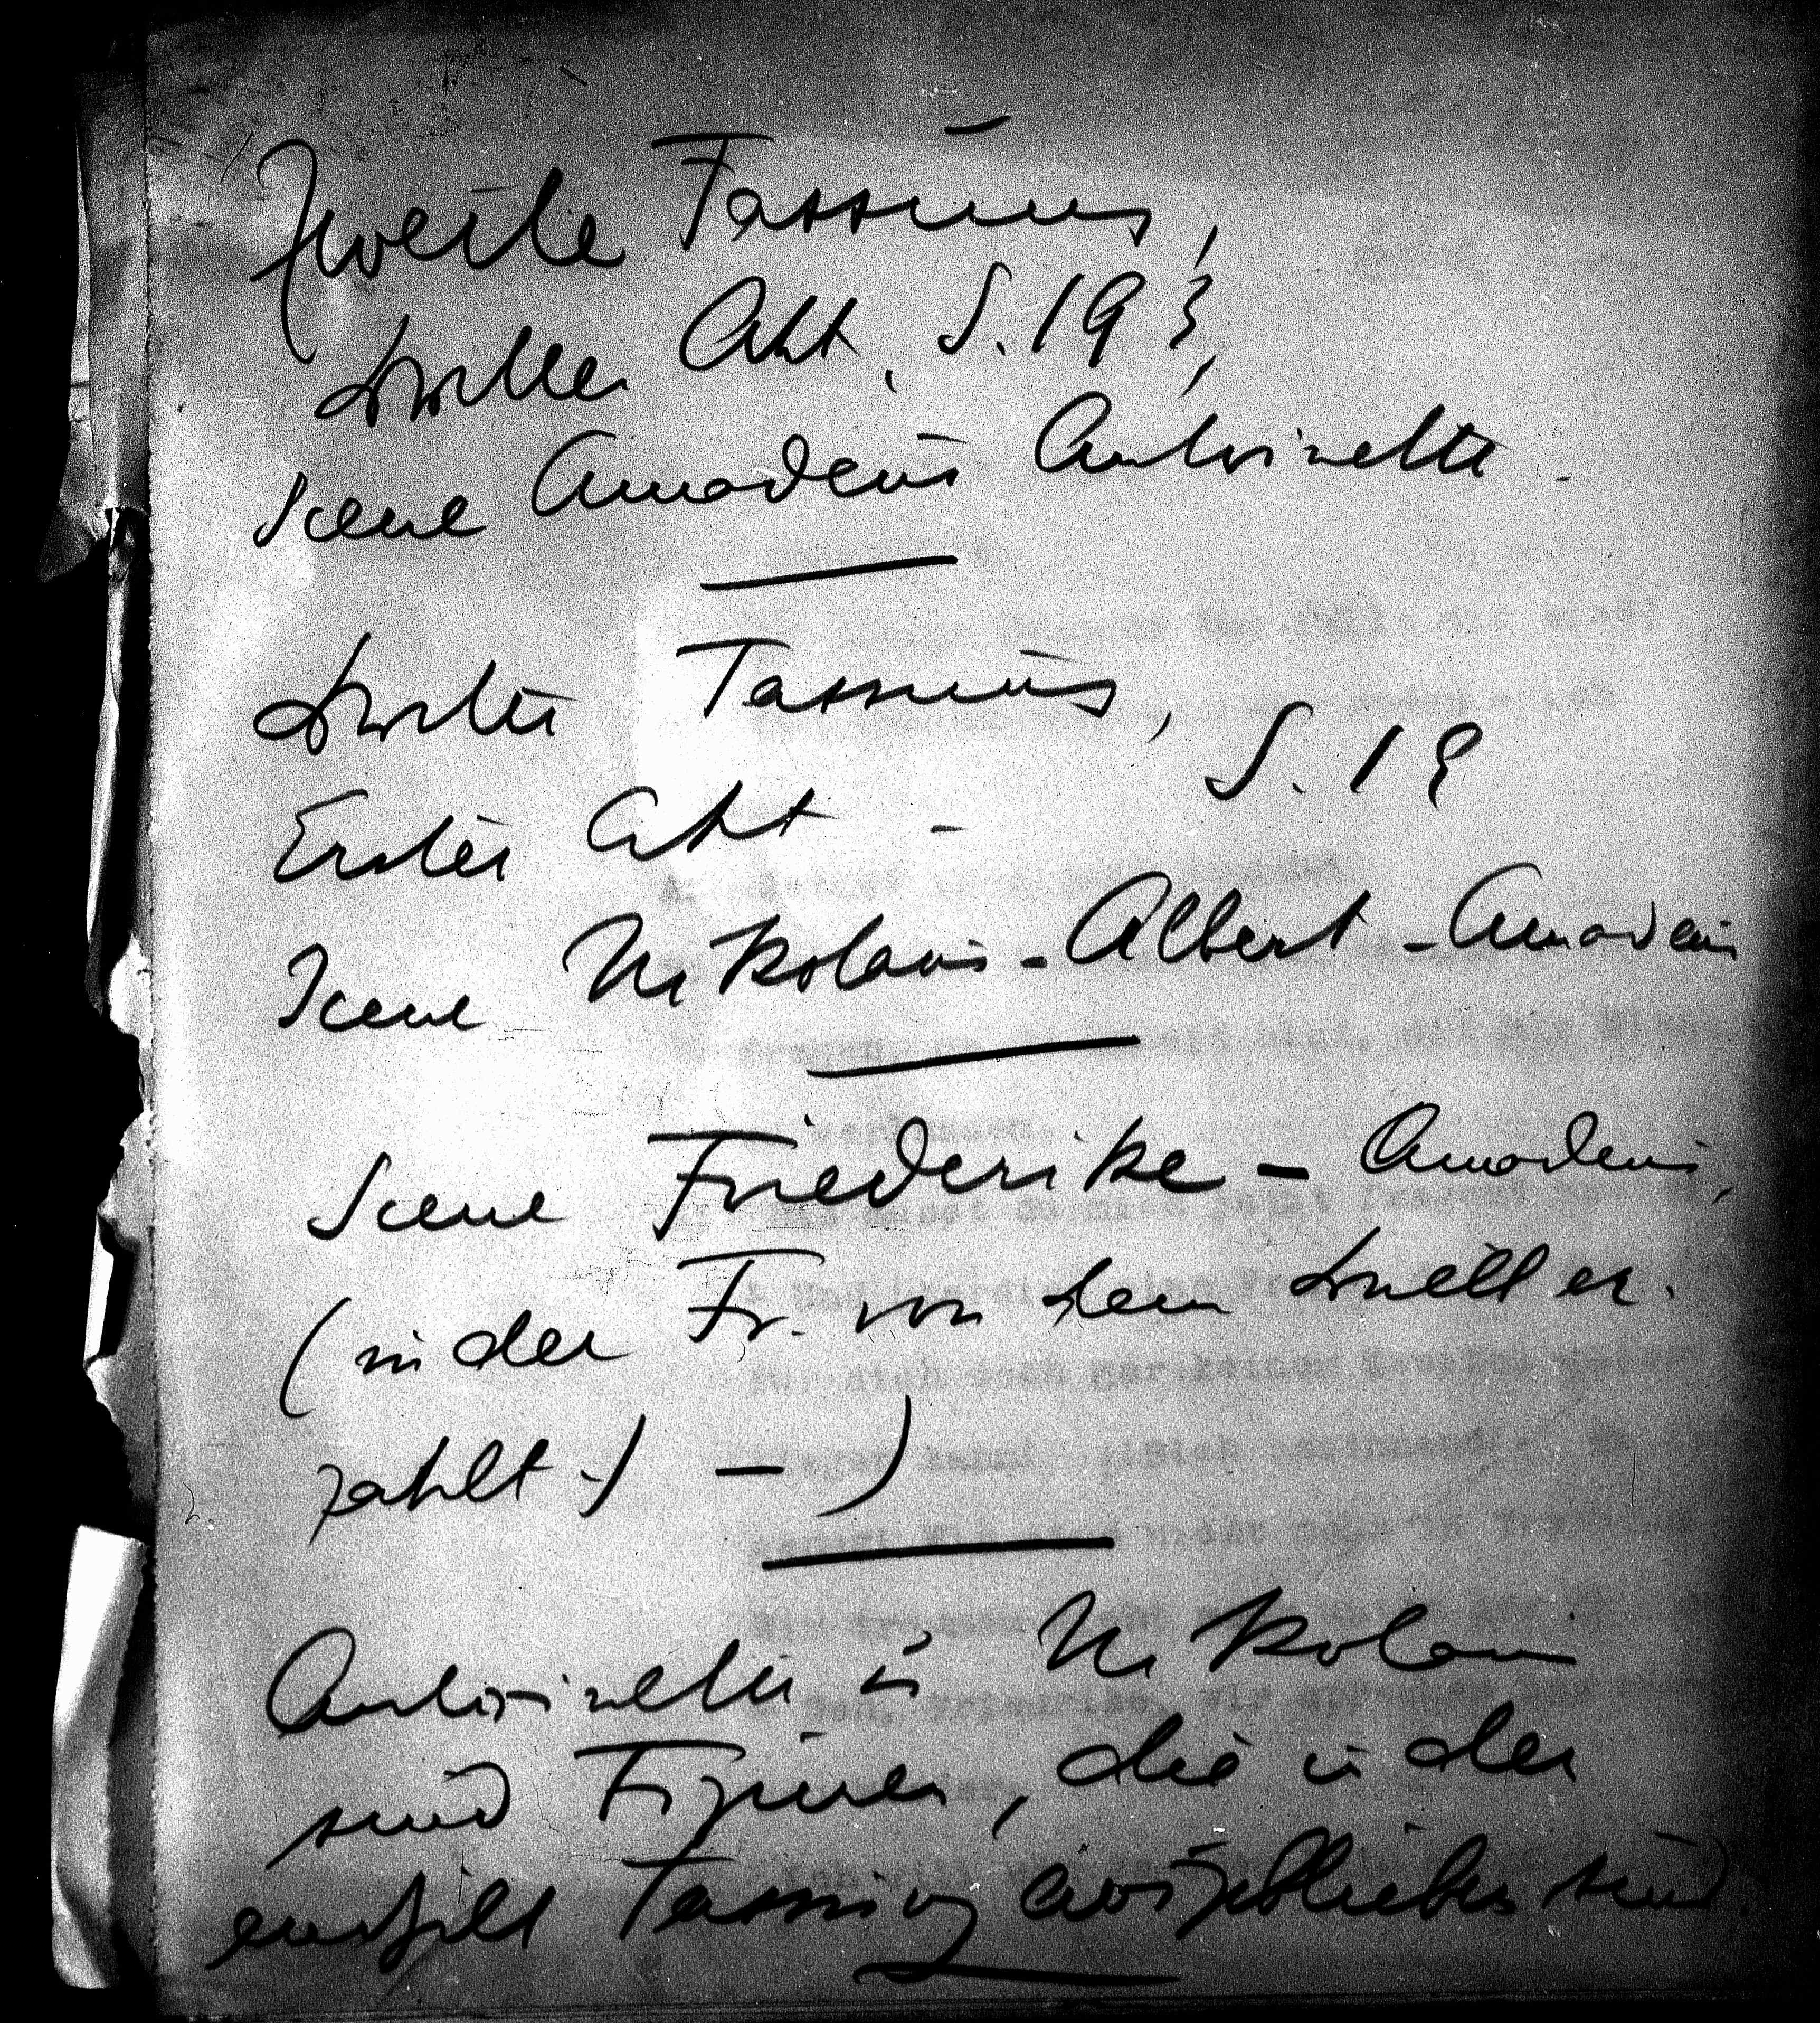 Zweite Fassung,
Dritter Akt, S. 193,
Scene Amadeus Antoinette.
Dritte Fassung,
S. 19
Erster Akt -
Scene Nikolaus - Albert - Amadeus
Scene Friederike - Amadeus,
(in der Fr. von dem Duell er-
zählt -) - )
Antoinette u Nikolaus
sind Figuren, die in der
endgilt Fassung ausgeblieben sind.